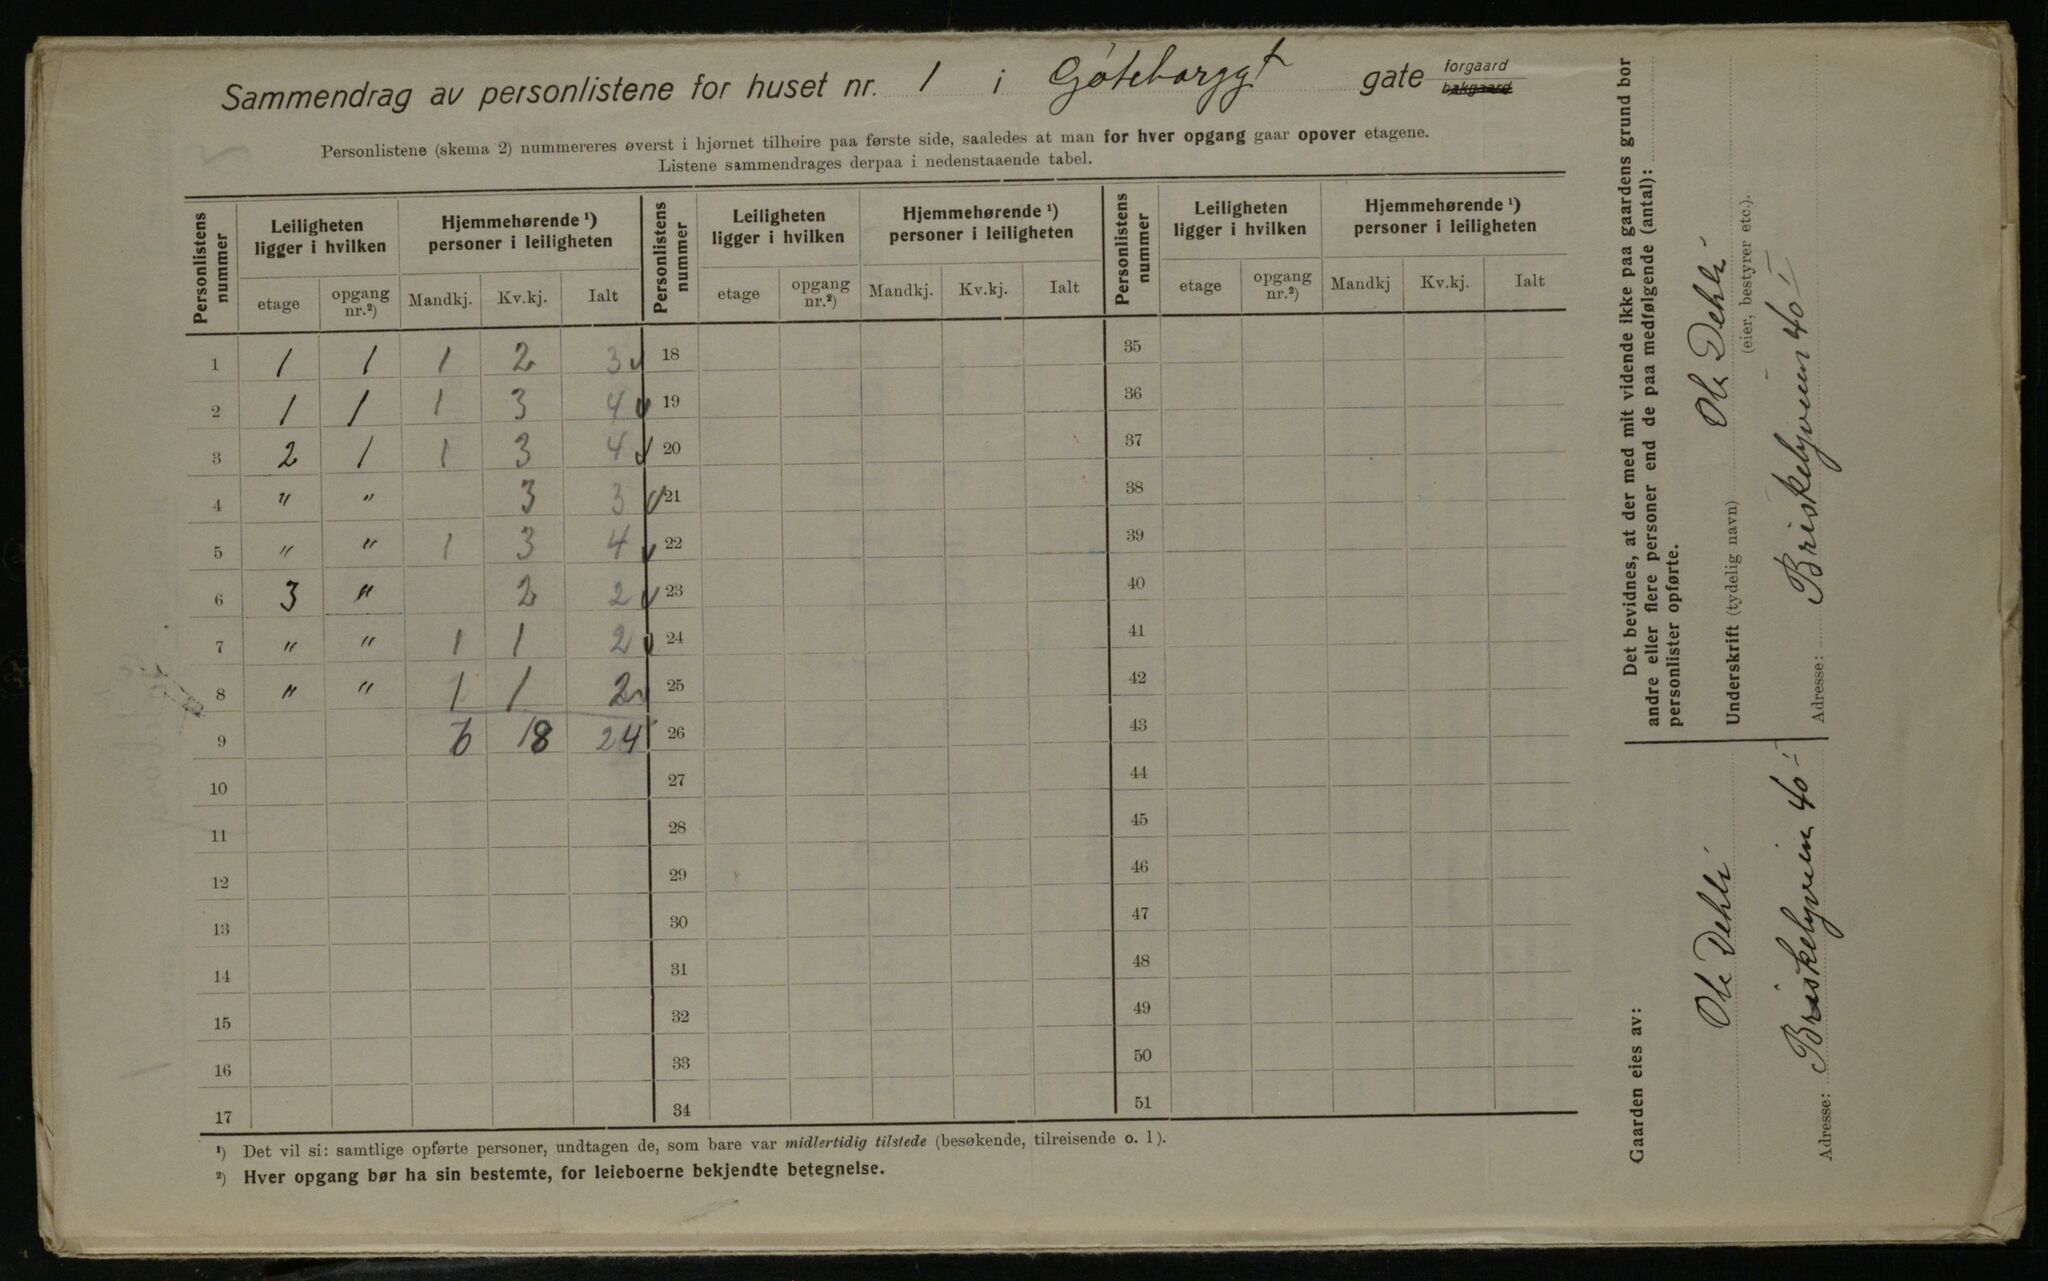 Sammendrag av personlistene for huset nr. 1 i Gøteborggt gate forgaard bakgaard
Personlistene (skema 2) nummereres øverst i hjørnet tilhøire paa første side, saaledes at man for hver opgang gaar opover etagene.
Listene sammendrages derpaa i nedenstaaende tabel.
Personlistens nummer | Leiligheten ligger i hvilken | Hjemmehørende ¹) personer i leiligheten | Personlistens nummer | Leiligheten ligger i hvilken | Hjemmehørende ¹) personer i leiligheten | Personlistens nummer | Leiligheten ligger i hvilken | Hjemmehørende ¹) personer i leiligheten
etage | opgang nr.²) | Mandkj. | Kv.kj. | Ialt | etage | opgang nr.²) | Mandkj. | Kv.kj. | Ialt | etage | opgang nr.²) | Mandkj | Kv.kj. | Ialt
1 | 1 | 1 | 1 | 2 | 3 | 18 | 35
2 | 1 | 1 | 1 | 3 | 4 | 19 | 36
3 | 2 | 1 | 1 | 3 | 4 | 20 | 37
4 | " | " | | 3 | 3 | 21 | 38
5 | " | " | 1 | 3 | 4 | 22 | 39
6 | 3 | " | | 2 | 2 | 23 | 40
7 | " | " | 1 | 1 | 2 | 24 | 41
8 | " | " | 1 | 1 | 2 | 25 | 42
9 | | | 6 | 18 | 24 | 26 | 43
10 | 27 | 44
11 | 28 | 45
12 | 29 | 46
13 | 30 | 47
14 | 31 | 48
15 | 32 | 49
16 | 33 | 50
17 | 34 | 51
¹) Det vil si: samtlige opførte personer, undtagen de, som bare var midlertidig tilstede (besøkende, tilreisende o. l).
²) Hver opgang bør ha sin bestemte, for leieboerne bekjendte betegnelse.
Det bevidnes, at der med mit vidende ikke paa gaardens grund bor
andre eller flere personer end de paa medfølgende (antal):
personlister opførte.
Underskrift (tydelig navn) Ole Dehli
(eier, bestyrer etc.).
Adresse: Briskebyveien 40
Gaarden eies av:
Ole Dehli
Adresse: Briskebyveien 40